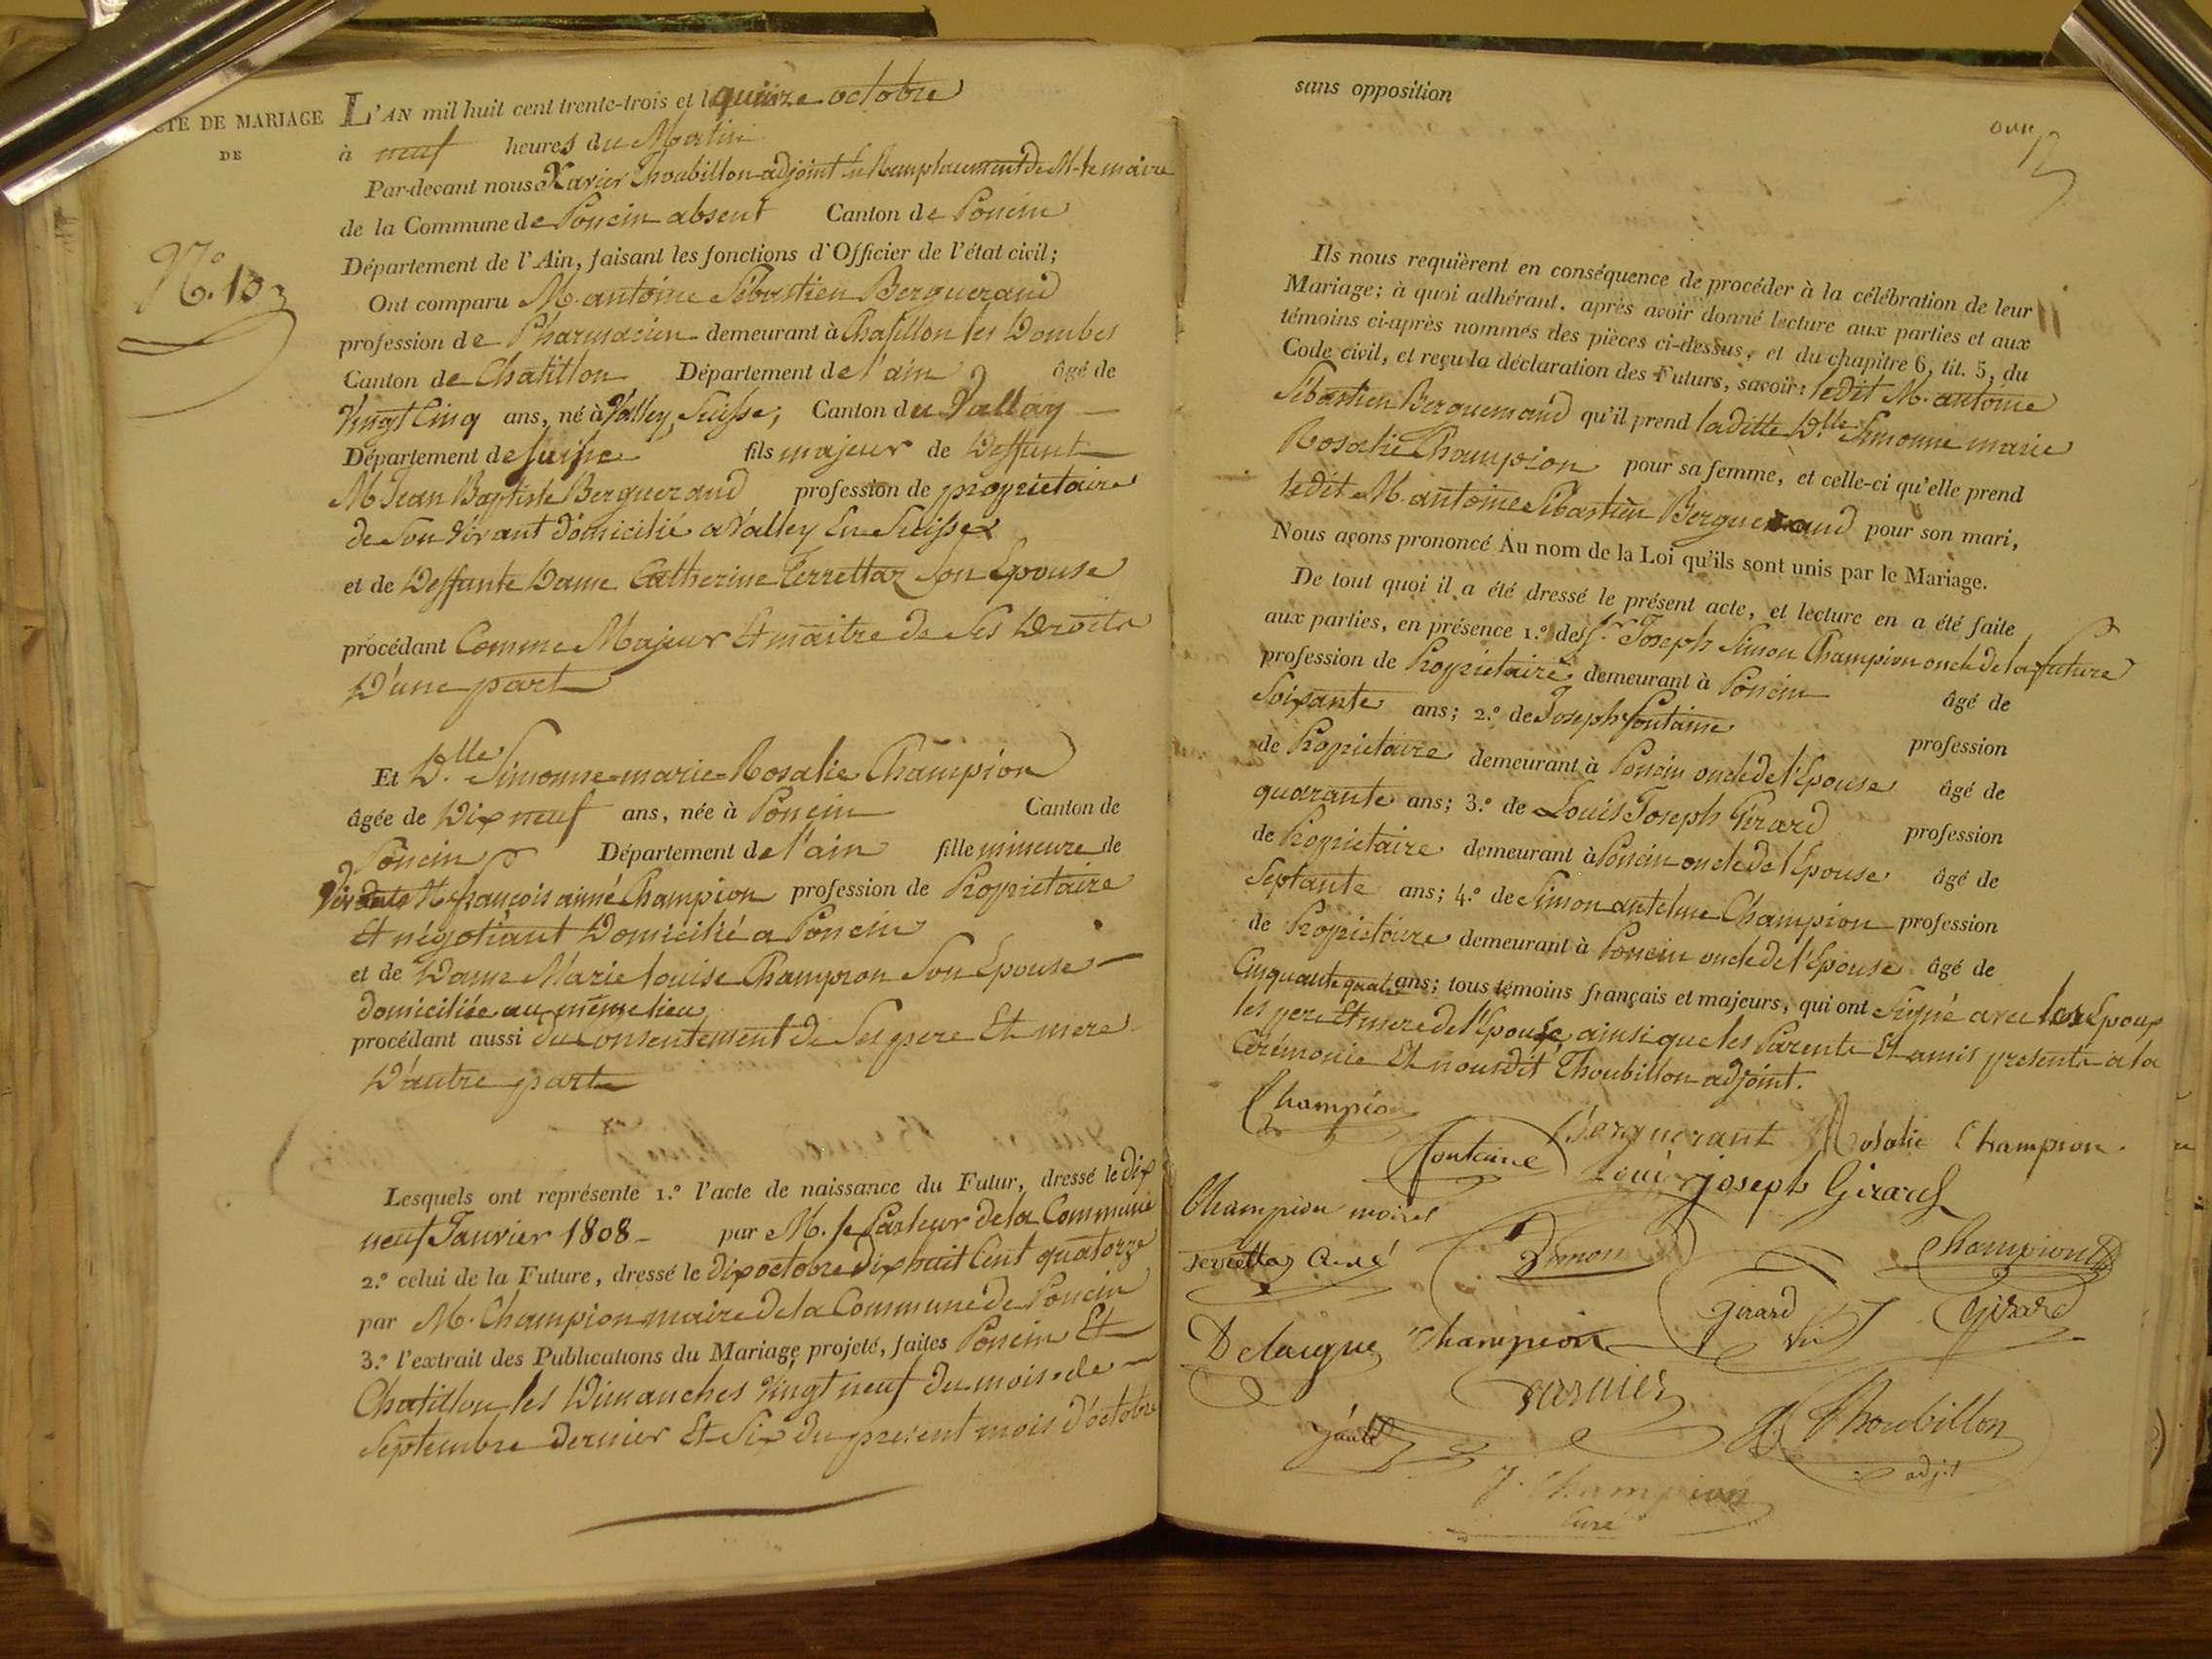 CTE DE MARIAGE
DE
N.º 13
L'AN mil huit cent trente-trois et le quinze octobre
à neuf heures du Matin
Par-devant nous Xavier Thoubillon adjoint En Remplacement de M. le maire
de la Commune de Poncin absent Canton de Poncin
Département de l'Ain, faisant les fonctions d'Officier de l'état civil;
Ont comparu M. antoine Sébastien Berguerand
profession de Pharmacien demeurant à Chatillon les Dombes
Canton de Chatillon Département de l'ain âgé de
Vingt Cinq ans, né à Valley, Suisse, Canton du Vallay
Département de Suisse fils majeur de Deffunt
M Jean Baptiste Berguerand profession de propriétaire
de Son Vivant domicilié a Valley En Suisse
et de Deffunte Dame Catherine Terrettaz Son Epouse
procédant Comme Majeur Et maitre de Ses Droits
D'une part
Et D.lle Simonne-marie-Rosalie Champion
âgée de Dix neuf ans, née à Poncin Canton de
Poncin Département de l'ain fille mineure de
M françois aimé Champion profession de Propriétaire
Et négotiant Domicilié a Poncin
et de Dame Marie louise Champion Son Epouse
domiciliée au même lieu
procédant aussi du Consentement de Ses pere Et mere
D'autre part
Lesquels ont représenté 1.º l'acte de naissance du Futur, dressé le dix
neuf Janvier 1808 par M. le Pasteur de la Commune
2.º celui de la Future, dressé le dix octobre dix huit Cent quatorze
par M. Champion maire de la Commune de Poncin
3.º l'extrait des Publications du Mariage projeté, faites Poncin Et
Chatillon les Dimanches Vingt neuf du mois de
Septembre dernier Et Six du present mois d'octobre
sans opposition
Ils nous requièrent en conséquence de procéder à la célébration de leur
Mariage; à quoi adhérant, après avoir donné lecture aux parties et aux
témoins ci-après nommés des pièces ci-dessus, et du chapitre 6, tit. 5, du
Code civil, et reçu la déclaration des Futurs, savoir: ledit M. antoine
Sébastien Berguerand qu'il prend laditte D.lle Simonne marie
Rosalie Champion pour sa femme, et celle-ci qu'elle prend
ledit M. antoine Sébastien Berguerand pour son mari,
Nous avons prononcé Au nom de la Loi qu'ils sont unis par le Mariage.
De tout quoi il a été dressé le présent acte, et lecture en a été faite
aux parties, en présence 1.º de S.r Joseph Simon Champion oncle de la future
profession de Propriétaire demeurant à Poncin âgé de
Soixante ans; 2.º de Joseph fontaine profession
de Propriétaire demeurant à Poncin oncle de l'Epouse âgé de
quarante ans; 3.º de Louis Joseph Girard profession
de Propriétaire demeurant à Poncin oncle de l'Epouse âgé de
Septante ans; 4.º de Simon antelme Champion profession
de Propriétaire demeurant à Poncin oncle de l'Epouse âgé de
Cinquante quatre ans; tous témoins français et majeurs, qui ont Signé avec les Epoux
les pere Et mere de l'Epouse, ainsi que les Parents Et amis presents a la
Cérémonie Et nousdit Thoubillon adjoint.
Champion
Berguerant Rosalie Champion
fontaine Louis joseph Girard
Champion
Terrettaz Simon Champion
Girard Girard
Delaigue Champion
Thoubillon
adjt
J. Champion
Curé